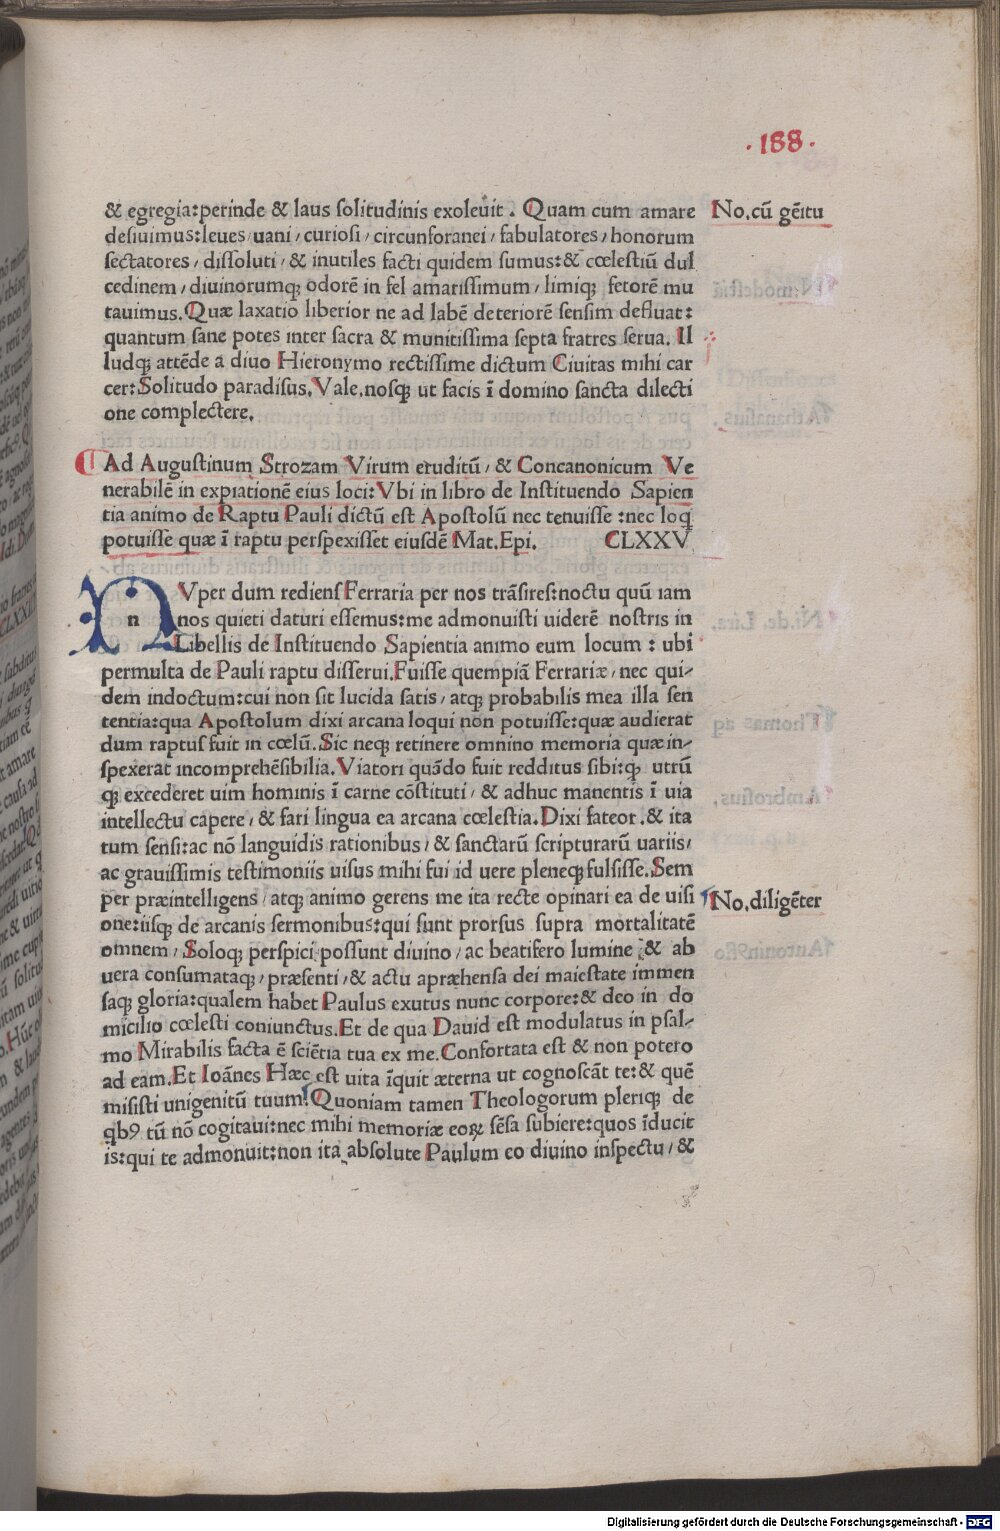 .188.
& egregia:perinde & laus solitudinis exoleuit. Quam cum amare
No.cū gēitu
desiuimus:leues/uani/curiosi/circunforanei/fabulatores/honorum
sectatores/dissoluti/& inutiles facti quidem sumus:& cœlestiū dul
cedinem/diuinorumq; odorē in fel amarissimum/limiq; fetorē mu
tauimus.Quæ laxatio liberior ne ad labē deteriorē sensim defluat:
quantum sane potes inter sacra & munitissima septa fratres serua. Il
ludq; attēde a diuo Hieronymo rectissime dictum Ciuitas mihi car
cer:Solitudo paradisus.Vale.nosq; ut facis ī domino sancta dilecti
one complectere.
Ad Augustinum Strozam Virum eruditū/& Concanonicum Ve
nerabilē in expiationē eius loci:Vbi in libro de Instituendo Sapien
tia animo de Raptu Pauli dictū est Apostolū nec tenuisse:nec loq
potuisse quæ ī raptu perspexisset eiusdē Mat.Epi. CLXXV
NVper dum rediens Ferraria per nos trāsires:noctu quū iam
nos quieti daturi essemus:me admonuisti uiderē nostris in
Libellis de Instituendo Sapientia animo eum locum : ubi
permulta de Pauli raptu disserui.Fuisse quempiā Ferrariæ/nec qui-
dem indoctum:cui non sit lucida satis/atq; probabilis mea illa sen
tentia:qua Apostolum dixi arcana loqui non potuisse:quæ audierat
dum raptus fuit in cœlū.Sic neq; retinere omnino memoria quæ in-
spexerat incomprehēsibilia.Viatori quādo fuit redditus sibi:q; utrū
q; excederet uim hominis ī carne cōstituti/& adhuc manentis ī uia
intellectu capere/& fari lingua ea arcana cœlestia.Dixi fateor.& ita
tum sensi:ac nō languidis rationibus/& sanctarū scripturarū uariis/
ac grauissimis testimoniis uisus mihi fui id uere pleneq; fulsisse.Sem
per præintelligens/atq; animo gerens me ita recte opinari ea de uisi
No.diligēter
one:iisq; de arcanis sermonibus:qui sunt prorsus supra mortalitatē
omnem/Soloq; perspici possunt diuino/ac beatifero lumine & ab
uera consumataq;/præsenti/& actu apræhensa dei maiestate immen
saq; gloria:qualem habet Paulus exutus nunc corpore:& deo in do
micilio cœlesti coniunctus.Et de qua Dauid est modulatus in psal-
mo Mirabilis facta ē sciētia tua ex me.Confortata est & non potero
ad eam.Et Ioānes Hæc est uita īquit æterna ut cognoscāt te:& quē
misisti unigenitū tuum.Quoniam tamen Theologorum pleriq; de
qb9 tū nō cogitaui:nec mihi memoriæ eoꝝ sēsa subiere:quos īducit
is:qui te admonuit:non ita absolute Paulum eo diuino inspectu/&
Digitalisierung gefördert durch die Deutsche Forschungsgemeinschaft - DFG